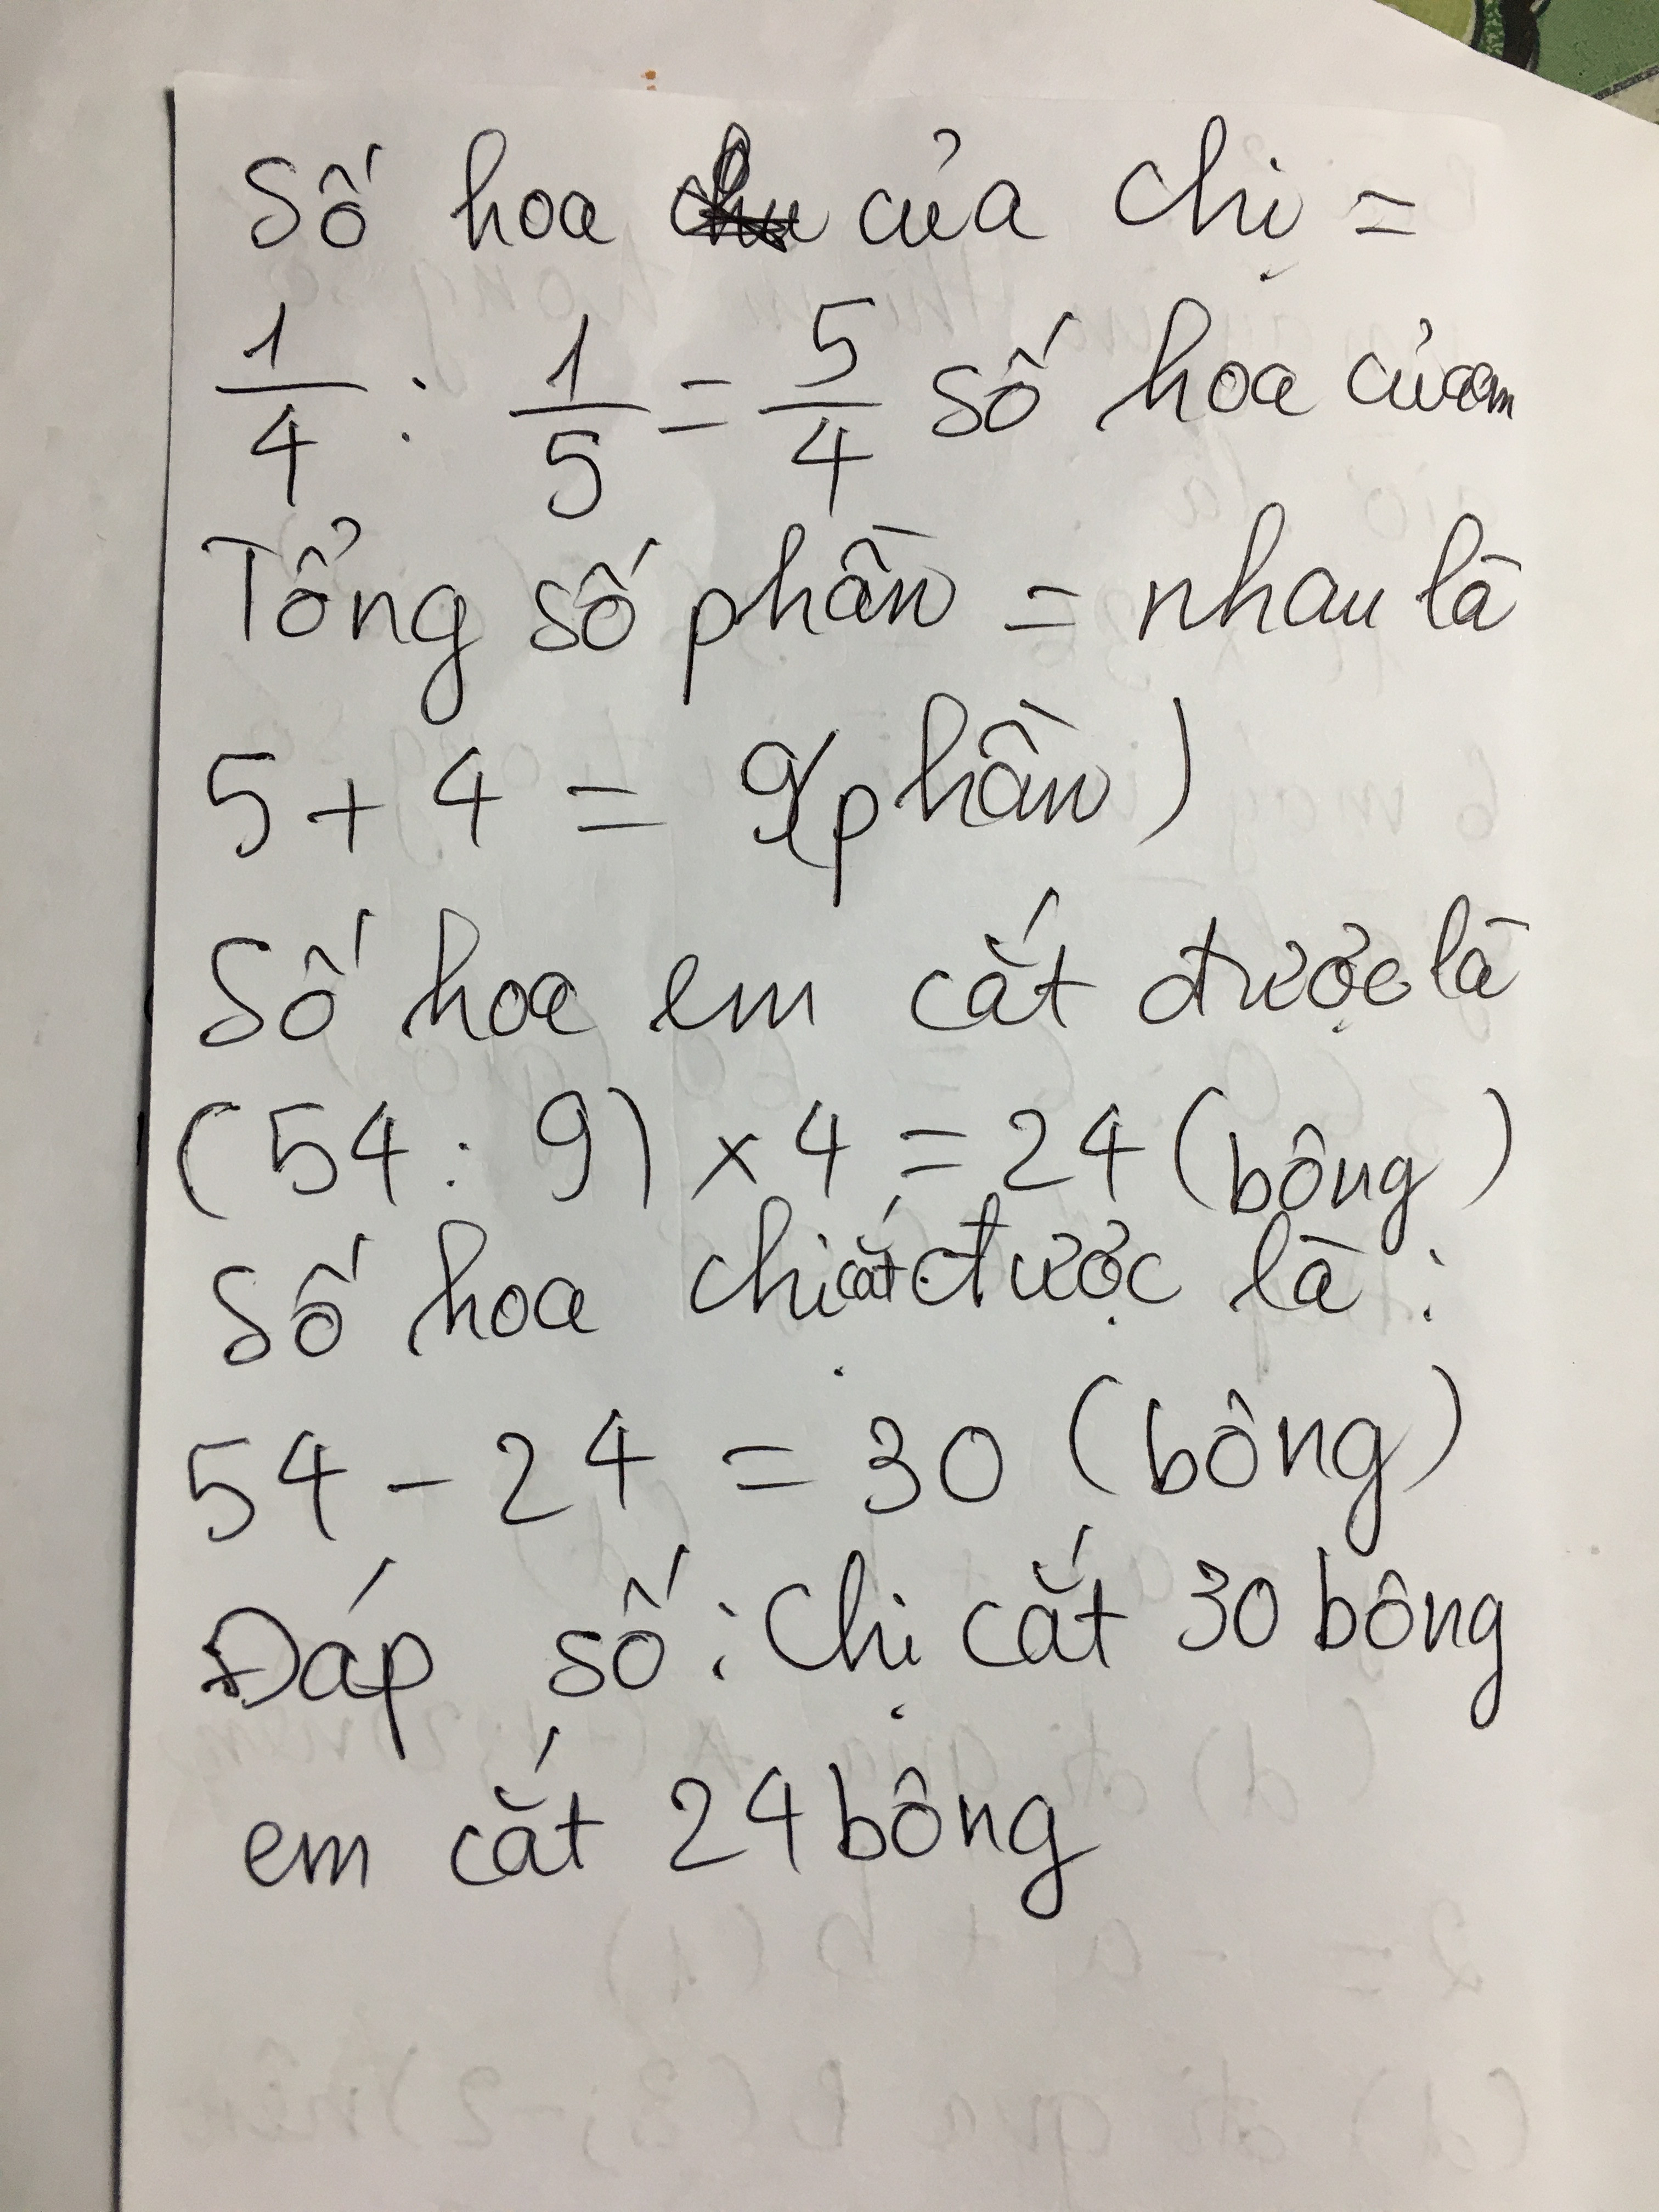 Số hoa của chị =
1/4 : 1/5 = 5/4 số hoa của em
Tổng số phần = nhau là
5 + 4 = 9 (phần)
Số hoa em cắt được là
(54 : 9) × 4 = 24 (bông)
Số hoa chị cắt được là :
54 - 24 = 30 (bông)
Đáp số : Chị cắt 30 bông
em cắt 24 bông